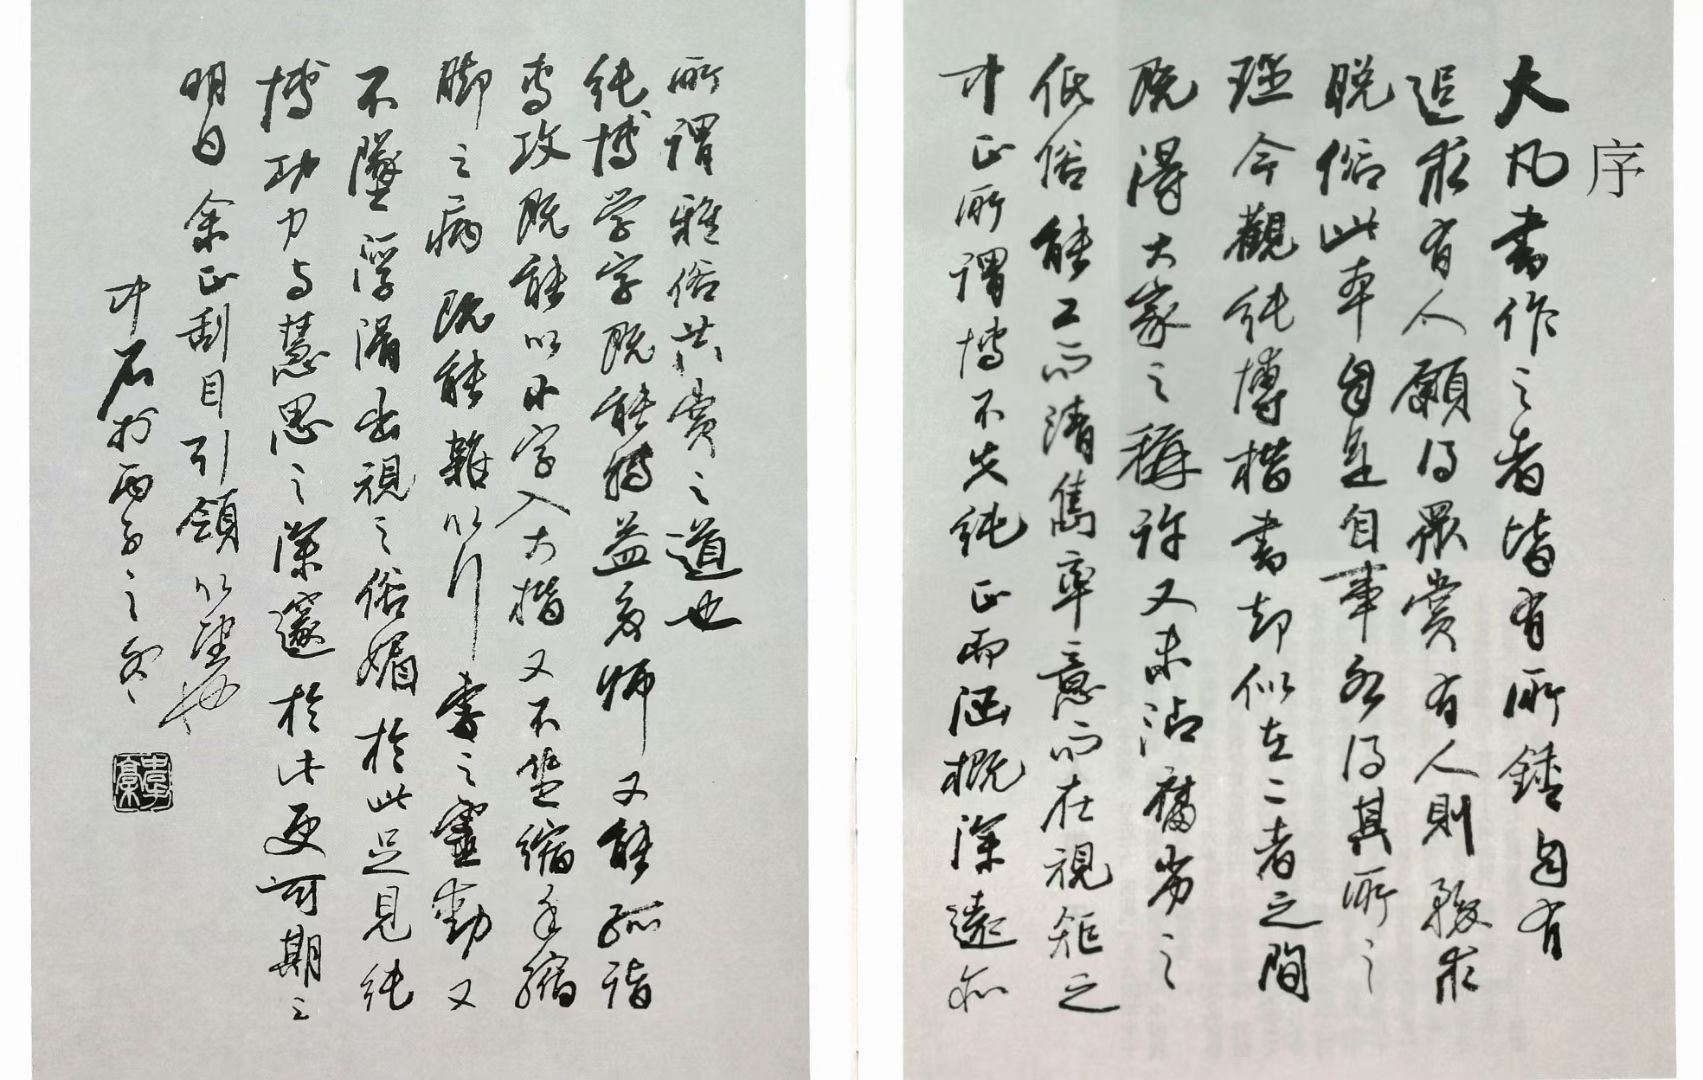 序
大凡書作之者皆有所鍾自有
追求有人願得眾賞有人則務求
脱俗此自是自事各得其所之
理今觀純博楷書却似在二者之間
既得大家之稱許又未沾劣之
低俗能工而清雋率意而在規矩之
中正所謂博不失純正而涵概深遠亦
所謂雅俗共賞之道也
純博学字既能轉益多師又能孤詣
专攻既能以小字入大楷又不縮手縮
脚之病既能雜以行草之靈動又
不墜浮滑之俗媚於此足見純
博功力与慧思之深邃於此更可期之
明日余正刮目引領以望也
中石於丙子之冬